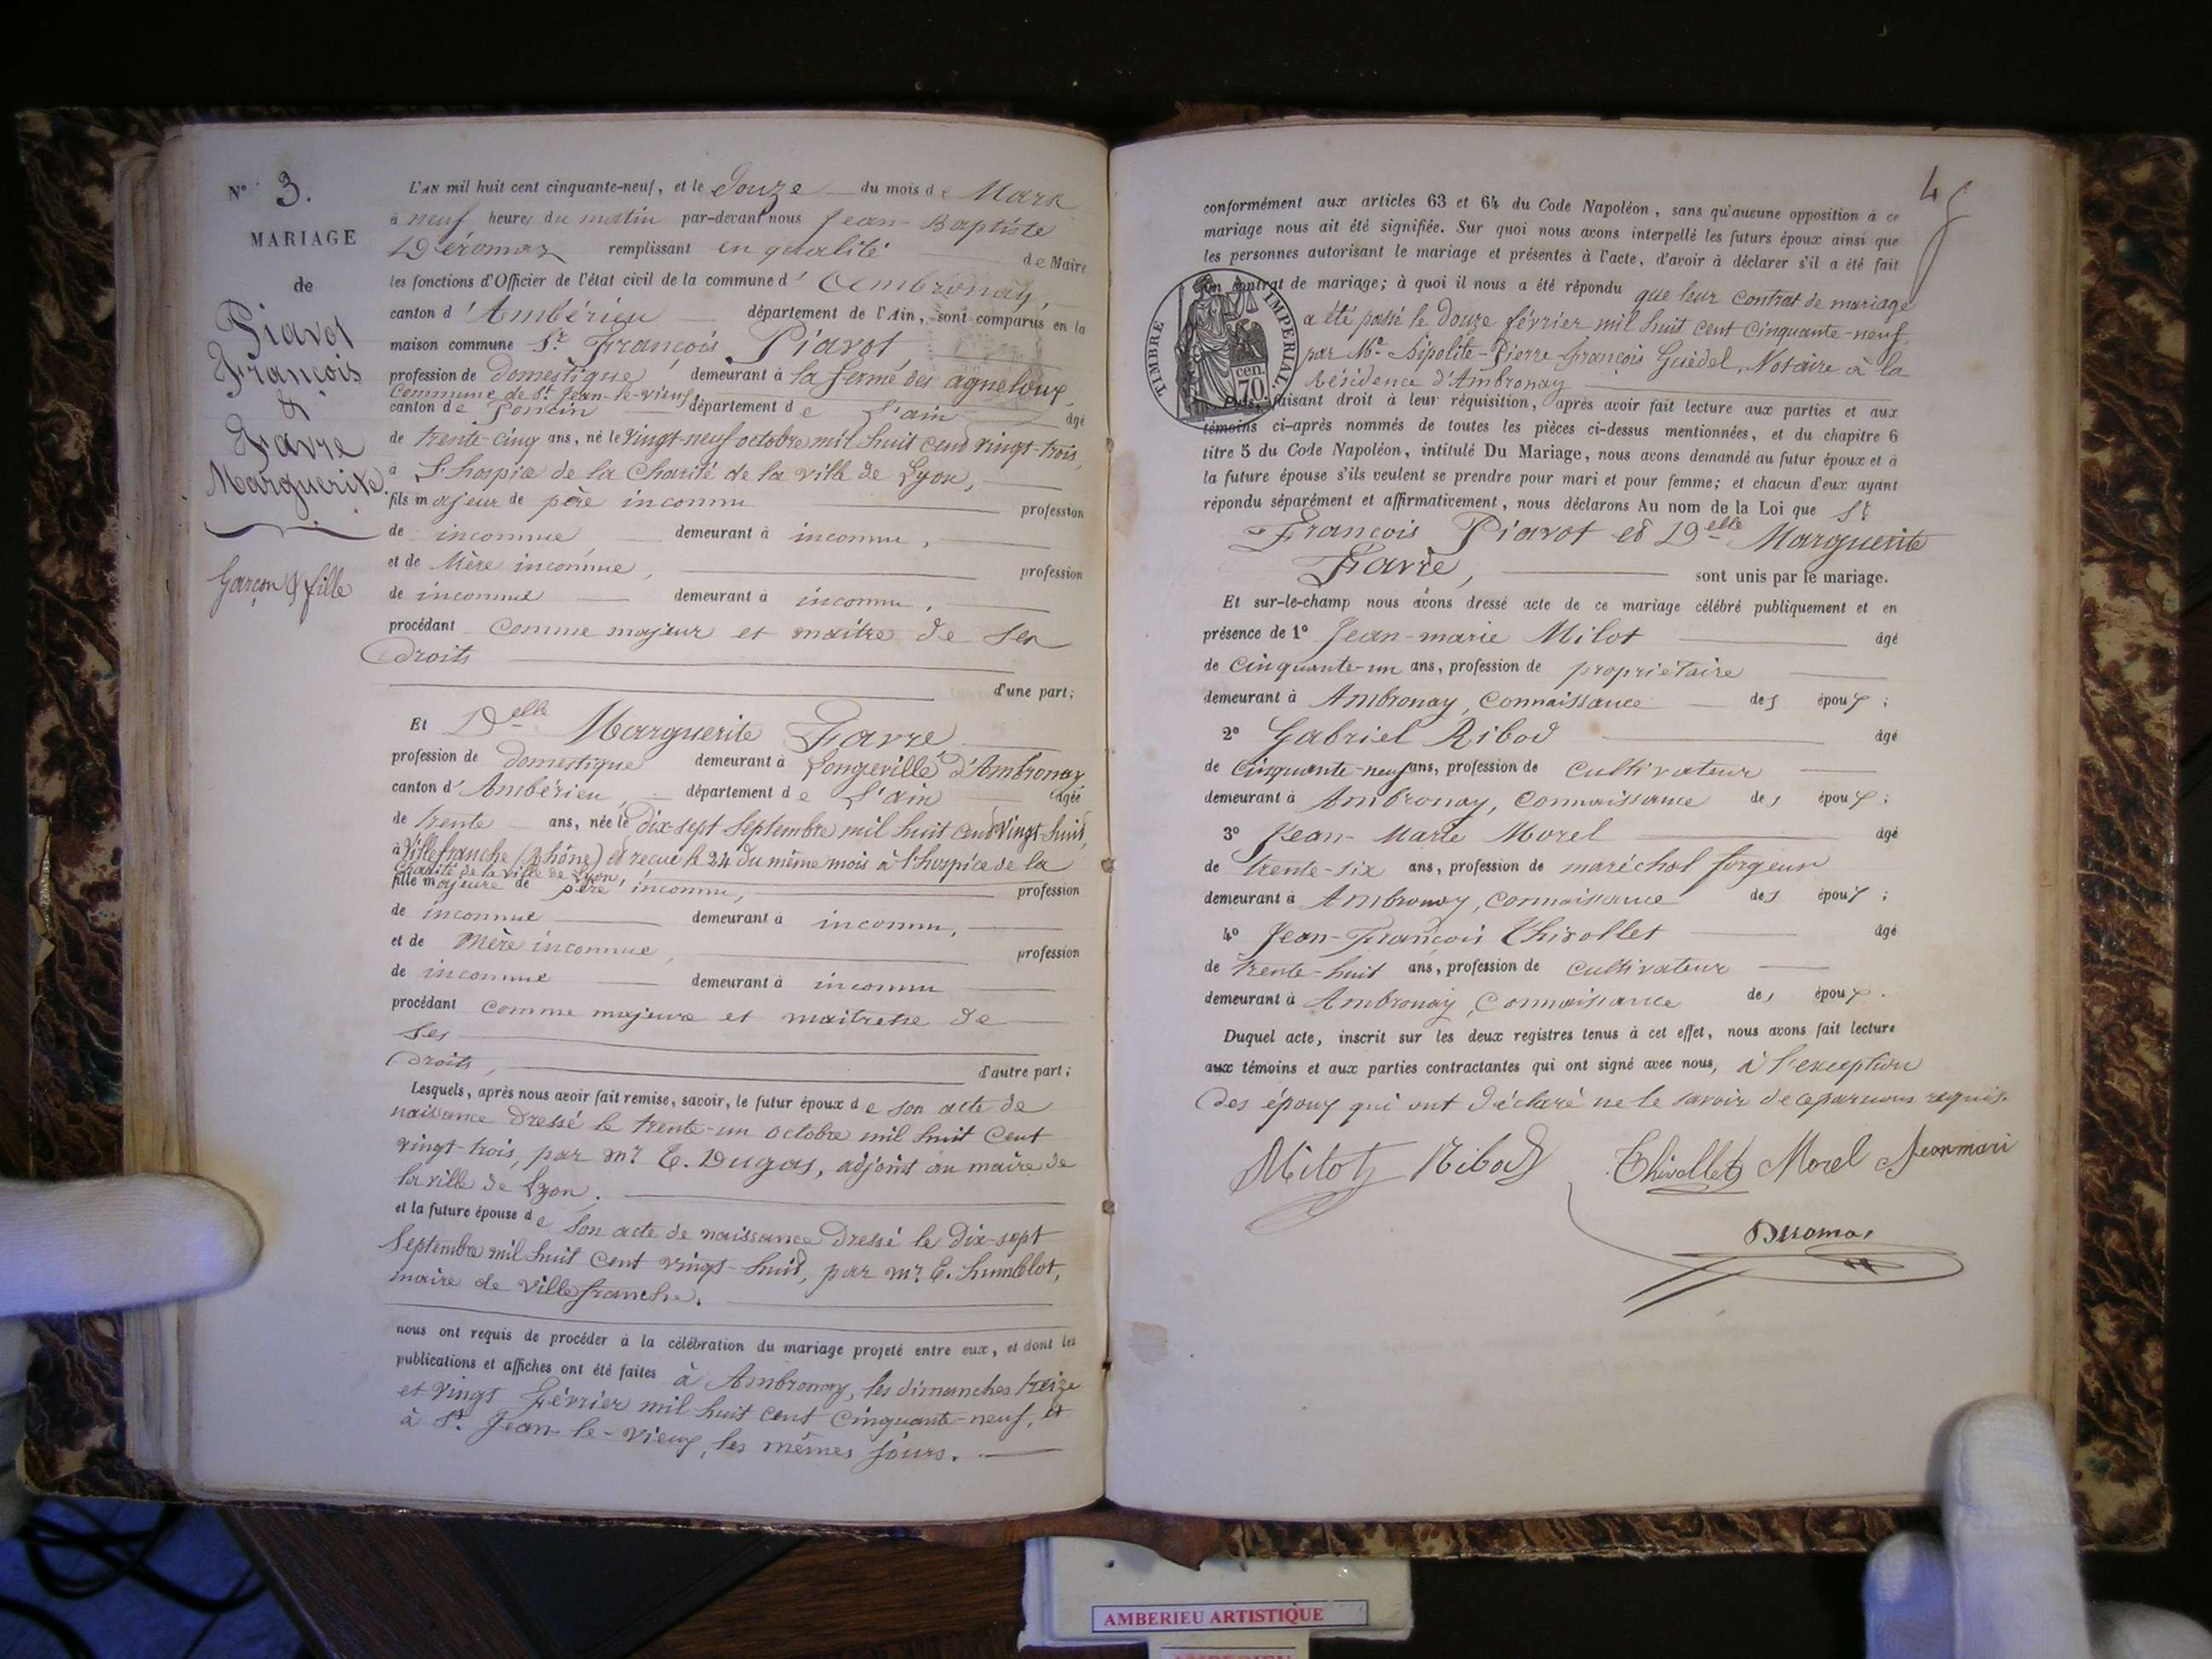 N° 3.
MARIAGE
de
Piavot
François
&
Favre
Marguerite.
Garçon & fille
L'AN mil huit cent cinquante-neuf, et le Douze du mois de Mars
à neuf heures du matin par-devant nous Jean-Baptiste
Déromas remplissant en qualité de Maire
les fonctions d'Officier de l'état civil de la commune d'Ambronay,
canton d'Ambérieu département de l'Ain, sont comparus en la
maison commune Sr. François Piavot,
profession de domestique demeurant à la ferme des agneloux,
Commune de St. Jean-le-vieux,
canton de Poncin département de l'ain âgé
de trente-cinq ans, né le vingt-neuf octobre mil huit cent vingt-trois,
à L'hospice de la Charité de la ville de Lyon,
fils majeur de père inconnu profession
de inconnue demeurant à inconnu,
et de Mère inconnue, profession
de inconnue demeurant à inconnu,
procédant Comme majeur et maître de ses
Droits
d'une part;
Et Delle Marguerite Favre
profession de domestique demeurant à Longeville d'Ambronay
canton d'Ambérieu, département de L'ain âgée
de trente ans, née le dix-sept Septembre mil huit cent vingt-huit,
à Villefranche (Rhône) et reçue le 24 du même mois à l'hospice de la
Charité de la ville de Lyon,
fille majeure de père inconnu, profession
de inconnue demeurant à inconnu,
et de Mère inconnue, profession
de inconnue demeurant à inconnu
procédant comme majeure et maitresse de
Ses
Droits, d'autre part;
Lesquels, après nous avoir fait remise, savoir, le futur époux de son acte de
naissance Dressé le trente-un octobre mil huit cent
vingt-trois, par Mr E. Dugas, adjoint au maire de
la ville de Lyon.
et la future épouse de Son acte de naissance Dressé le Dix-sept
Septembre mil huit cent vingt-huit, par Mr. E. humblot,
maire de Villefranche.
nous ont requis de procéder à la célébration du mariage projeté entre eux, et dont les
publications et affiches ont été faites à Ambronay, les dimanches treize
et vingt Février mil huit cent cinquante-neuf, et
à St. Jean-le-vieux, les mêmes jours.
4
conformément aux articles 63 et 64 du Code Napoléon, sans qu'aucune opposition à ce
mariage nous ait été signifiée. Sur quoi nous avons interpellé les futurs époux ainsi que
les personnes autorisant le mariage et présentes à l'acte, d'avoir à déclarer s'il a été fait
un contrat de mariage; à quoi il nous a été répondu que leur contrat de mariage
a été passé le Douze février mil huit cent Cinquante-neuf,
par Me. Hipolite-Pierre-François Guédel, Notaire à la
Résidence d'Ambronay
TIMBRE IMPÉRIAL.
70 cen.
faisant droit à leur réquisition, après avoir fait lecture aux parties et aux
témoins ci-après nommés de toutes les pièces ci-dessus mentionnées, et du chapitre 6
titre 5 du Code Napoléon, intitulé Du Mariage, nous avons demandé au futur époux et à
la future épouse s'ils veulent se prendre pour mari et pour femme; et chacun d'eux ayant
répondu séparément et affirmativement, nous déclarons Au nom de la Loi que Sr
François Piavot et Delle Marguerite
Favre, sont unis par le mariage.
Et sur-le-champ nous avons dressé acte de ce mariage célébré publiquement et en
présence de 1° Jean-marie Milot âgé
de Cinquante-un ans, profession de propriétaire
demeurant à Ambronay, Connaissance des époux;
2° Gabriel Ribod âgé
de Cinquante-neuf ans, profession de Cultivateur
demeurant à Ambronay, Connaissance des époux;
3° Jean-Marie Morel âgé
de trente-six ans, profession de maréchal forgeur
demeurant à Ambronay, Connaissance des époux;
4° Jean-François Thivollet âgé
de trente-huit ans, profession de Cultivateur
demeurant à Ambronay, Connaissance des époux.
Duquel acte, inscrit sur les deux registres tenus à cet effet, nous avons fait lecture
aux témoins et aux parties contractantes qui ont signé avec nous, à l'exception
Des époux qui ont Déclaré ne le savoir de ce par nous requis.
Milot Ribod Thivollet Morel Jeanmari
Deromas
AMBERIEU ARTISTIQUE